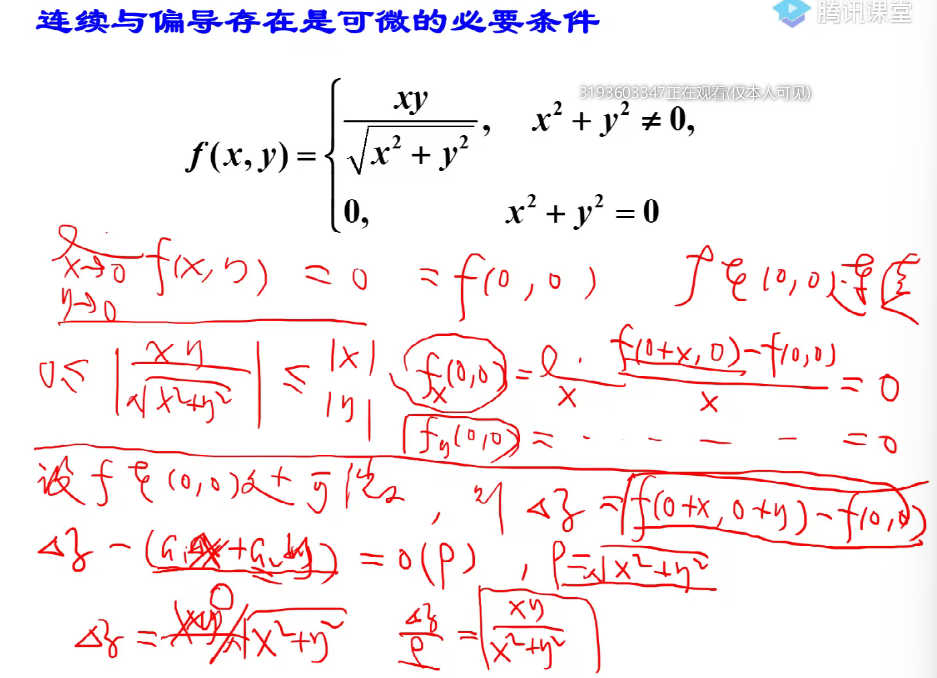 连续与偏导存在是可微的必要条件
腾讯课堂
3193603347正在观看(仅本人可见)
f(x, y) = { xy / √(x² + y²), x² + y² ≠ 0,
0, x² + y² = 0
l. x→0 y→0 f(x, y) = 0 = f(0, 0) f 在(0,0)连续
0 ≤ | xy / √(x²+y²) | ≤ |x| |y| f_x(0,0) = l. x (f(0+x, 0) - f(0,0)) / x = 0
f_y(0,0) = · - - - = 0
设 f 在(0,0)处可微, 则 Δz = f(0+x, 0+y) - f(0,0)
Δz - ( + ) = o(ρ), ρ = √(x²+y²)
Δz = xy / √(x²+y²) Δz/ρ = xy / (x²+y²)